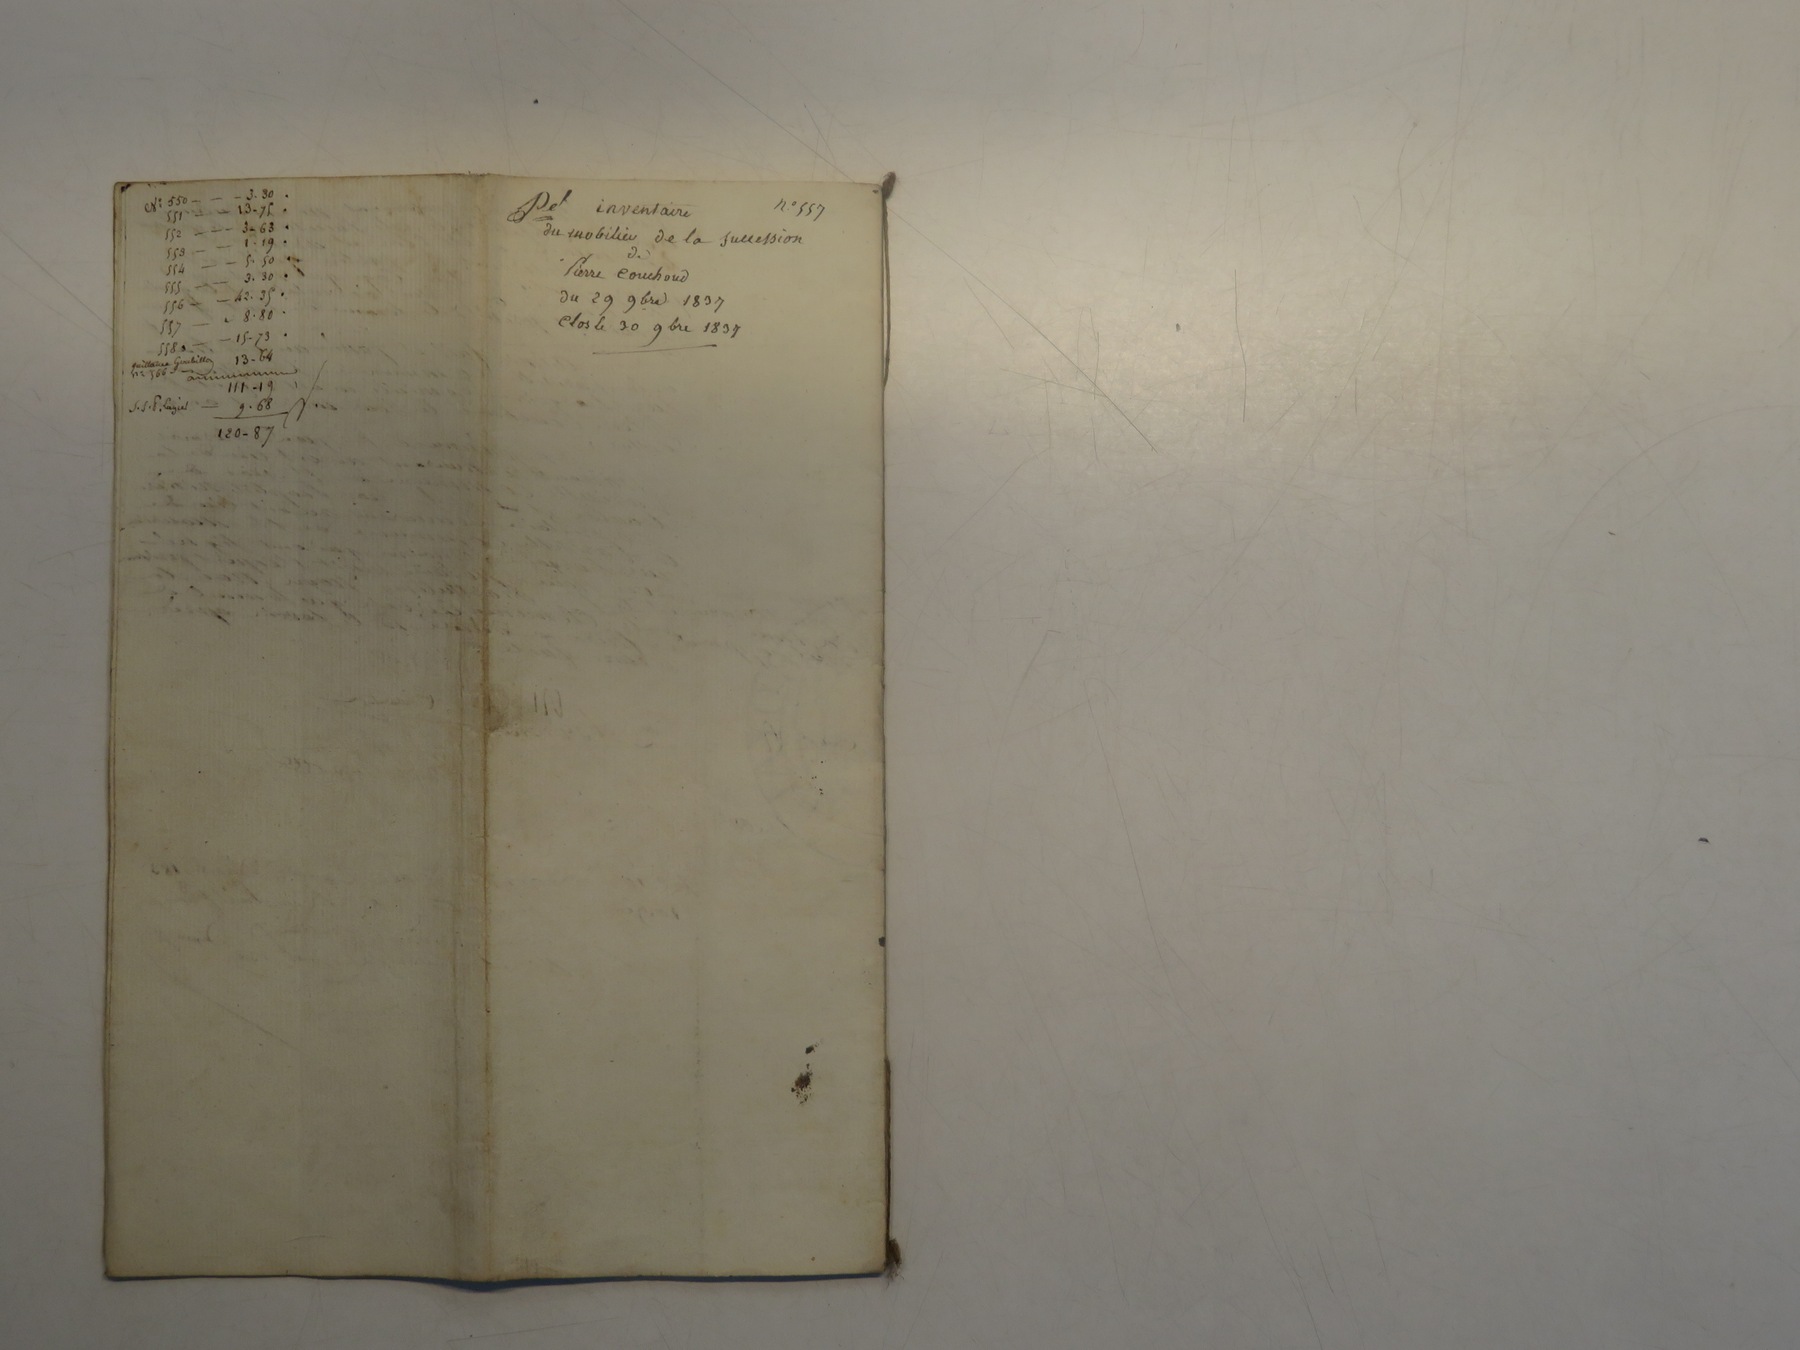 N° 550 — — — 3.30
551 — — 13-75
552 — — — 3-63
553 — — 1-19
554 — — 5.50
555 — — 3.30
556 — — 42.35
557 — 8.80
558 — — 15-73
quittance
n° 566 13-64
111-19
S.S.P. — 9.68
120-87
Pet inventaire n° 557
du mobilier de la succession
de
Pierre Couchoud
du 29 9bre 1837
Clos le 30 9bre 1837